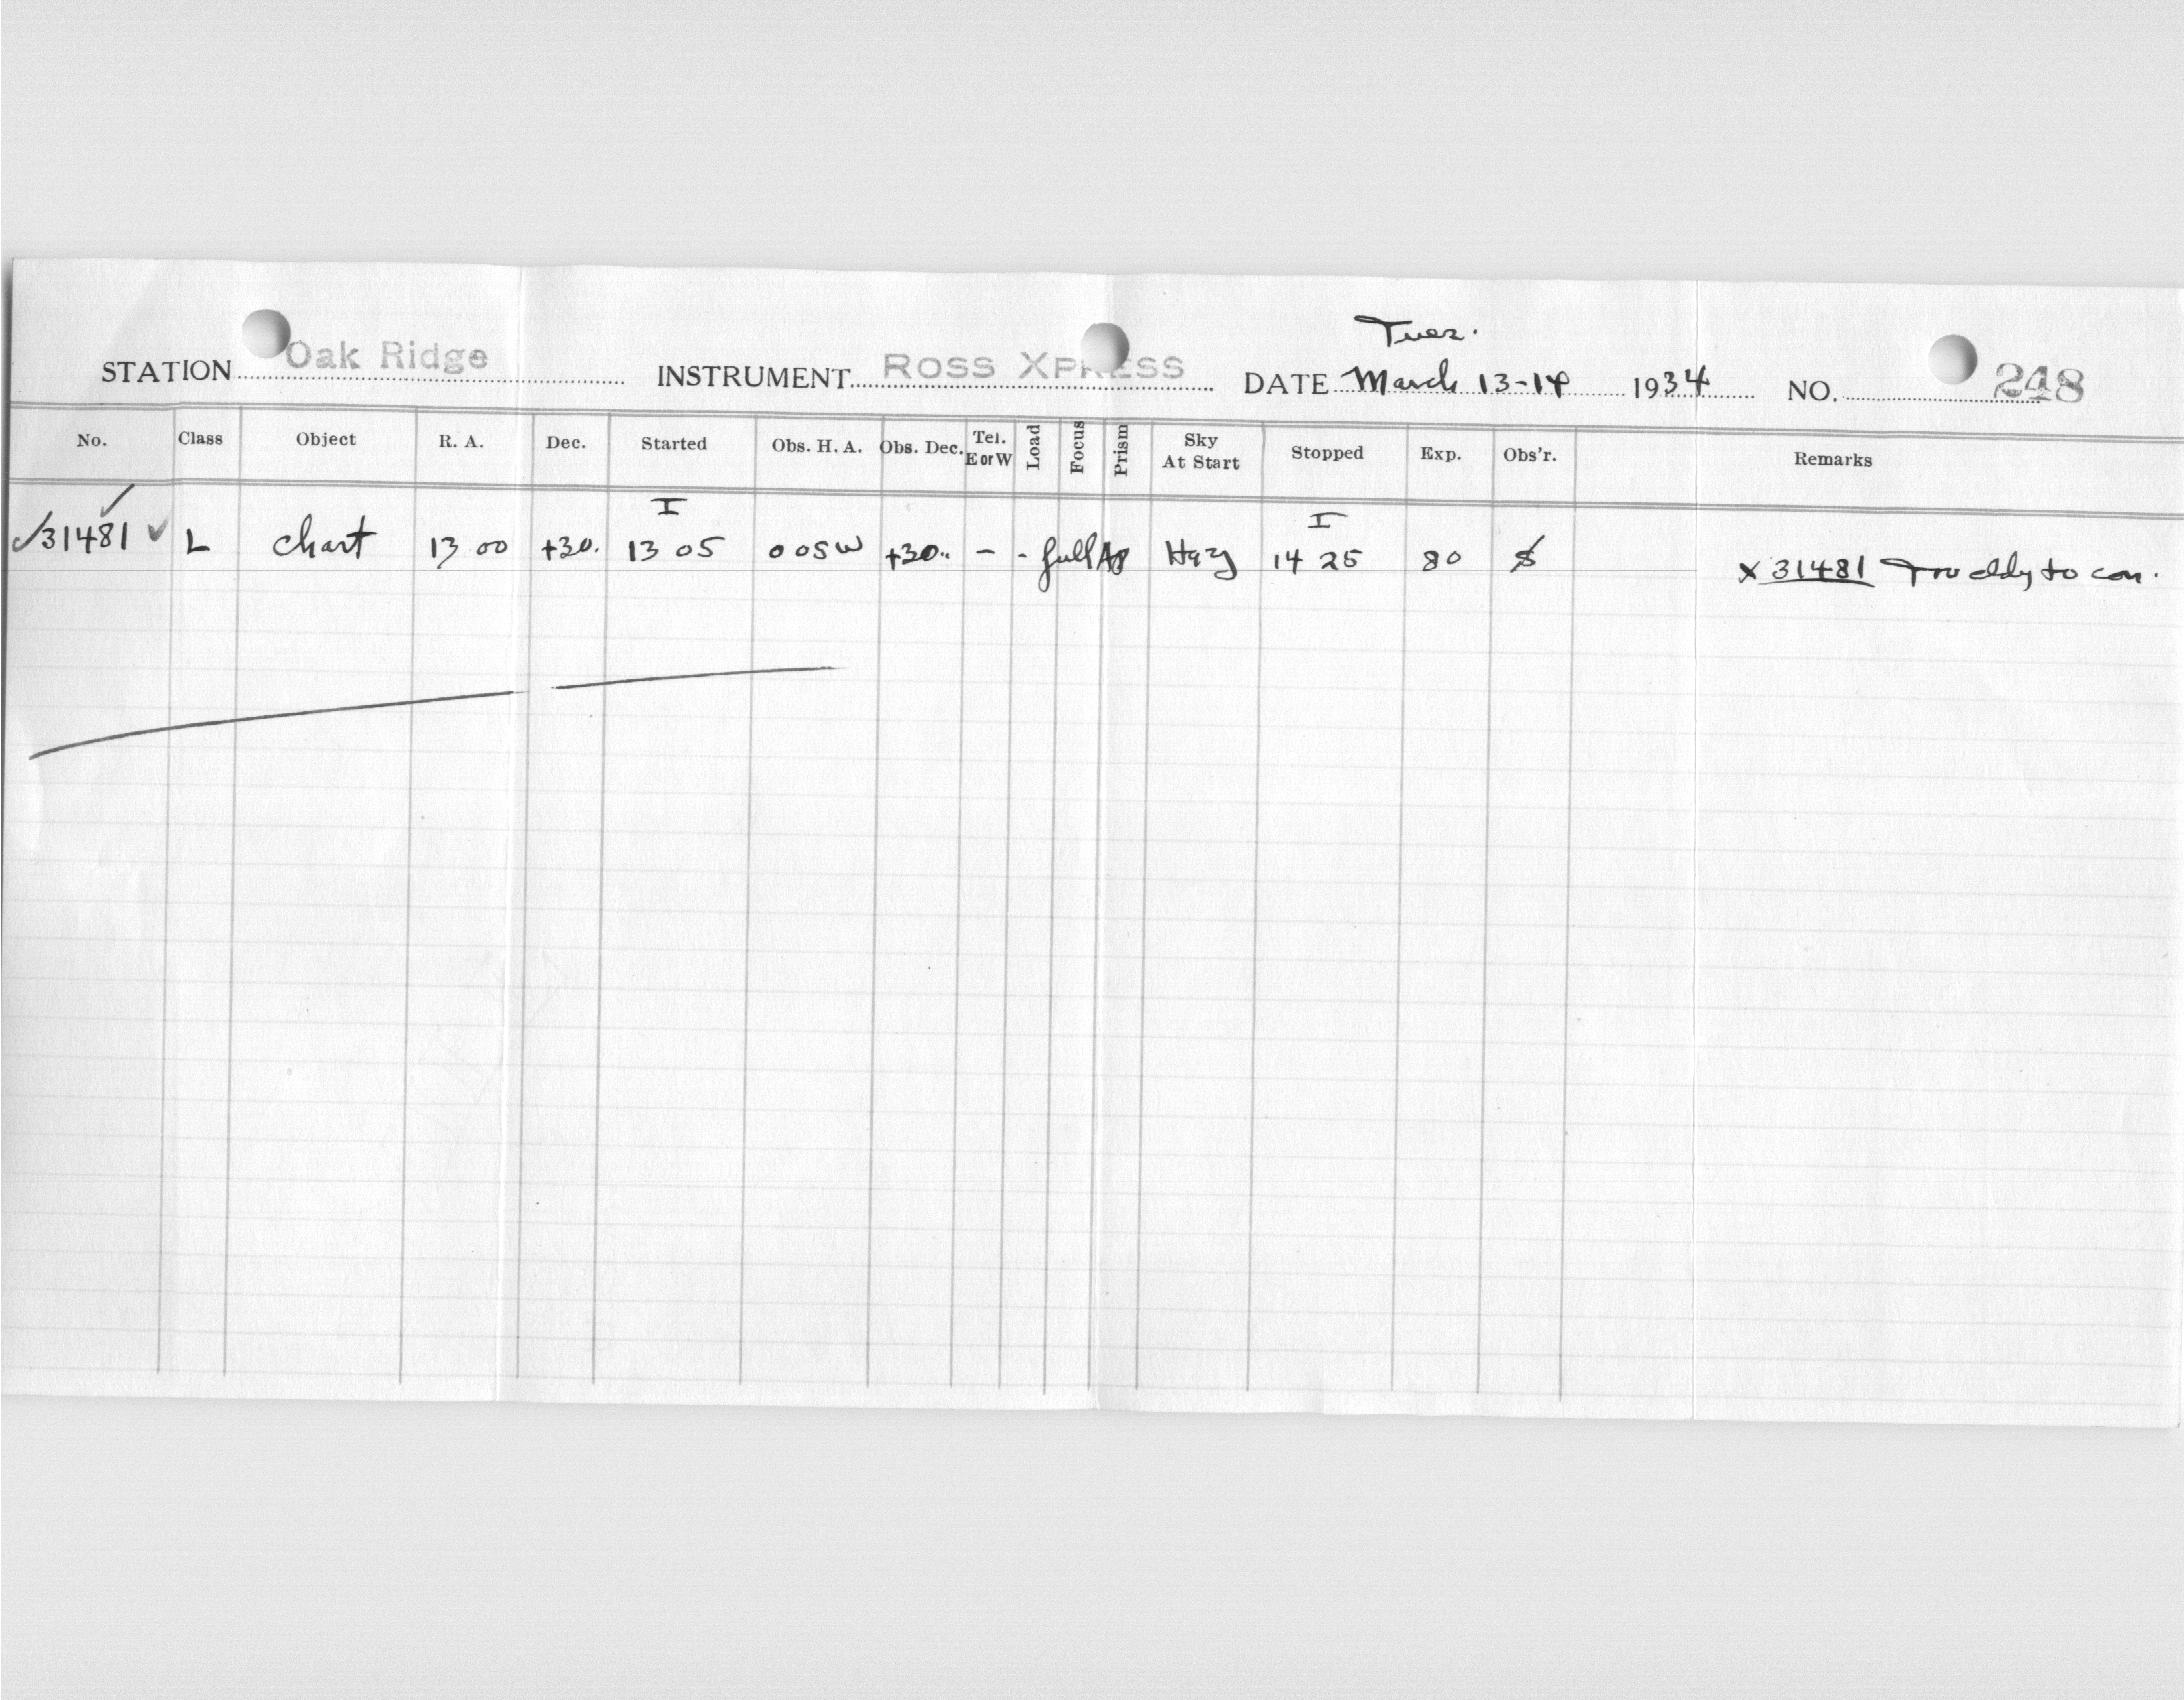 Tues.
STATION Oak Ridge INSTRUMENT ROSS XPRESS DATE March 13-14 1934 NO. 248
No. Class Object R. A. Dec. Started Obs. H. A. Obs. Dec. Tel. E or W Load Focus Prism Sky At Start Stopped Exp. Obs'r. Remarks
I I
31481 L Chart 13 00 +30. 13 05 0 05 W +30.. - - full Ap Hazy 14 25 80 S x 31481 Too cldy to con.